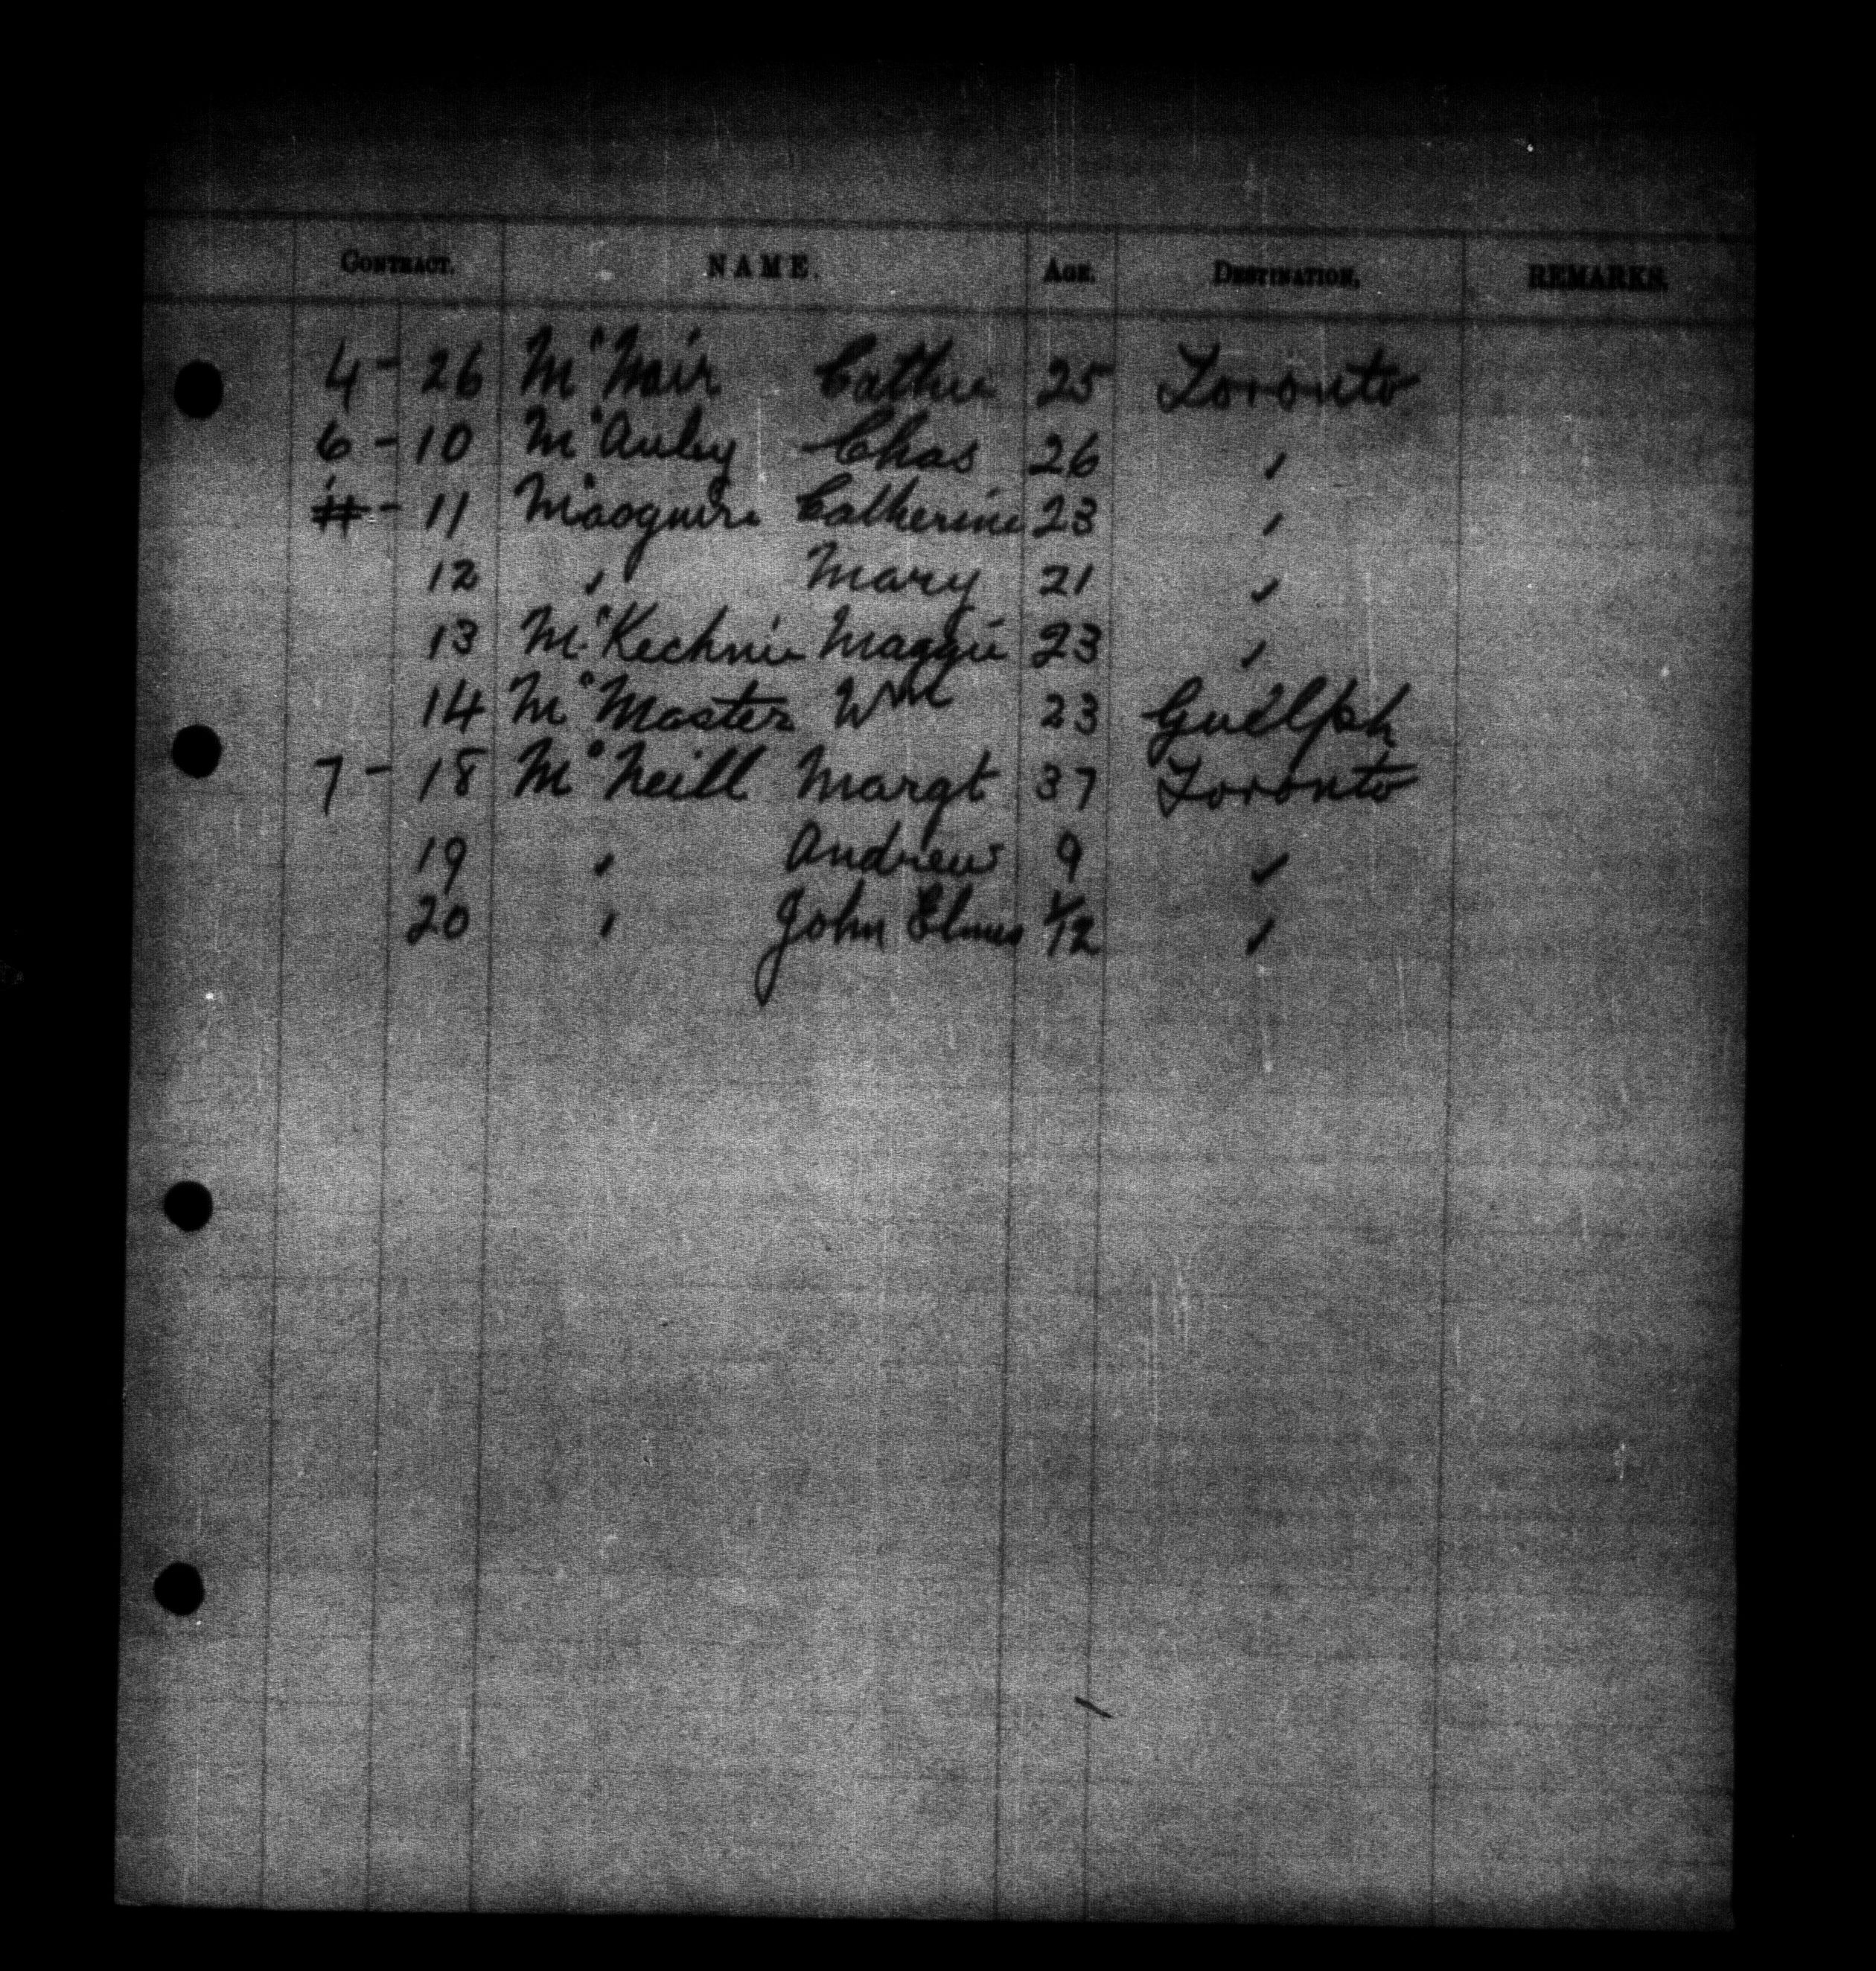 CONTRACT. NAME. AGE. DESTINATION. REMARKS.
4 - 26 McNair Cathie 25 Toronto
6 - 10 McAuley Chas 26 "
# - 11 Macguire Catherine 23 "
12 " Mary 21 "
13 McKechnie Maggie 23 "
14 McMaster Wm 23 Guelph
7 - 18 McNeill Margt 37 Toronto
19 " Andrew 9 "
20 " John 1/12 "